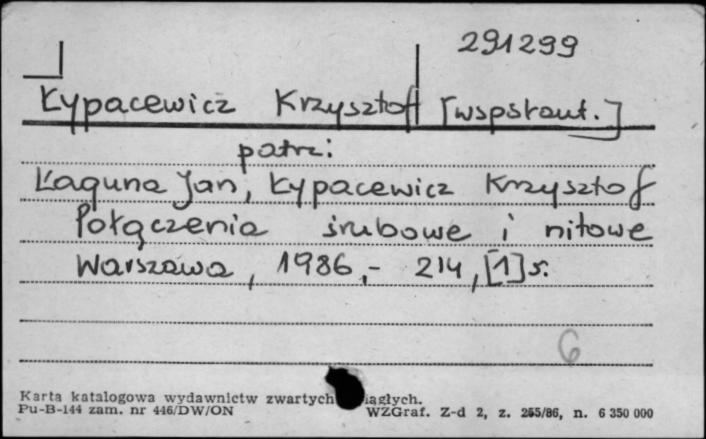 291299
Łypacewicz Krzysztof [współaut.]
patrz:
Łaguna Jan, Łypacewicz Krzysztof
Połączenia śrubowe i nitowe
Warszawa, 1986,- 214, [1] s.
6
Karta katalogowa wydawnictw zwartych iągłych.
Pu-B-144 zam. nr 446/DW/ON WZGraf. Z-d 2, z. 255/86, n. 6 350 000